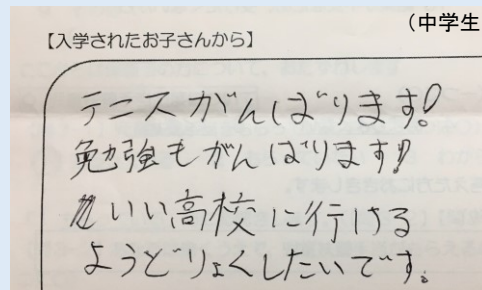 (中学生
【入学されたお子さんから】
テニスがんばります!
勉強もがんばります!
いい高校に行ける
ようどりょくしたいです。